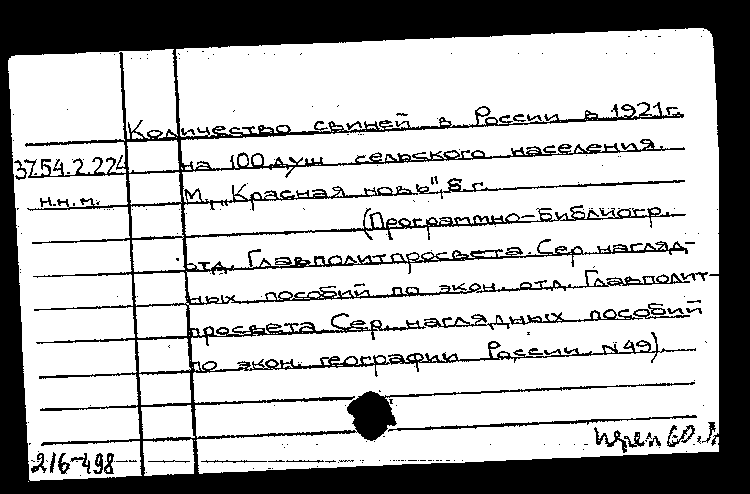 Количество свиней в России в 1921г.
37.54.2.224. на 100 душ сельского населения.
н.н.м. М., „Красная новь", б.г.
(Программно-Библиогр.
отд. Главполитпросвета. Сер. нагляд-
ных пособий по экон. отд. Главполит-
просвета. Сер. наглядных пособий
по экон. географии России. N 49).
216-498